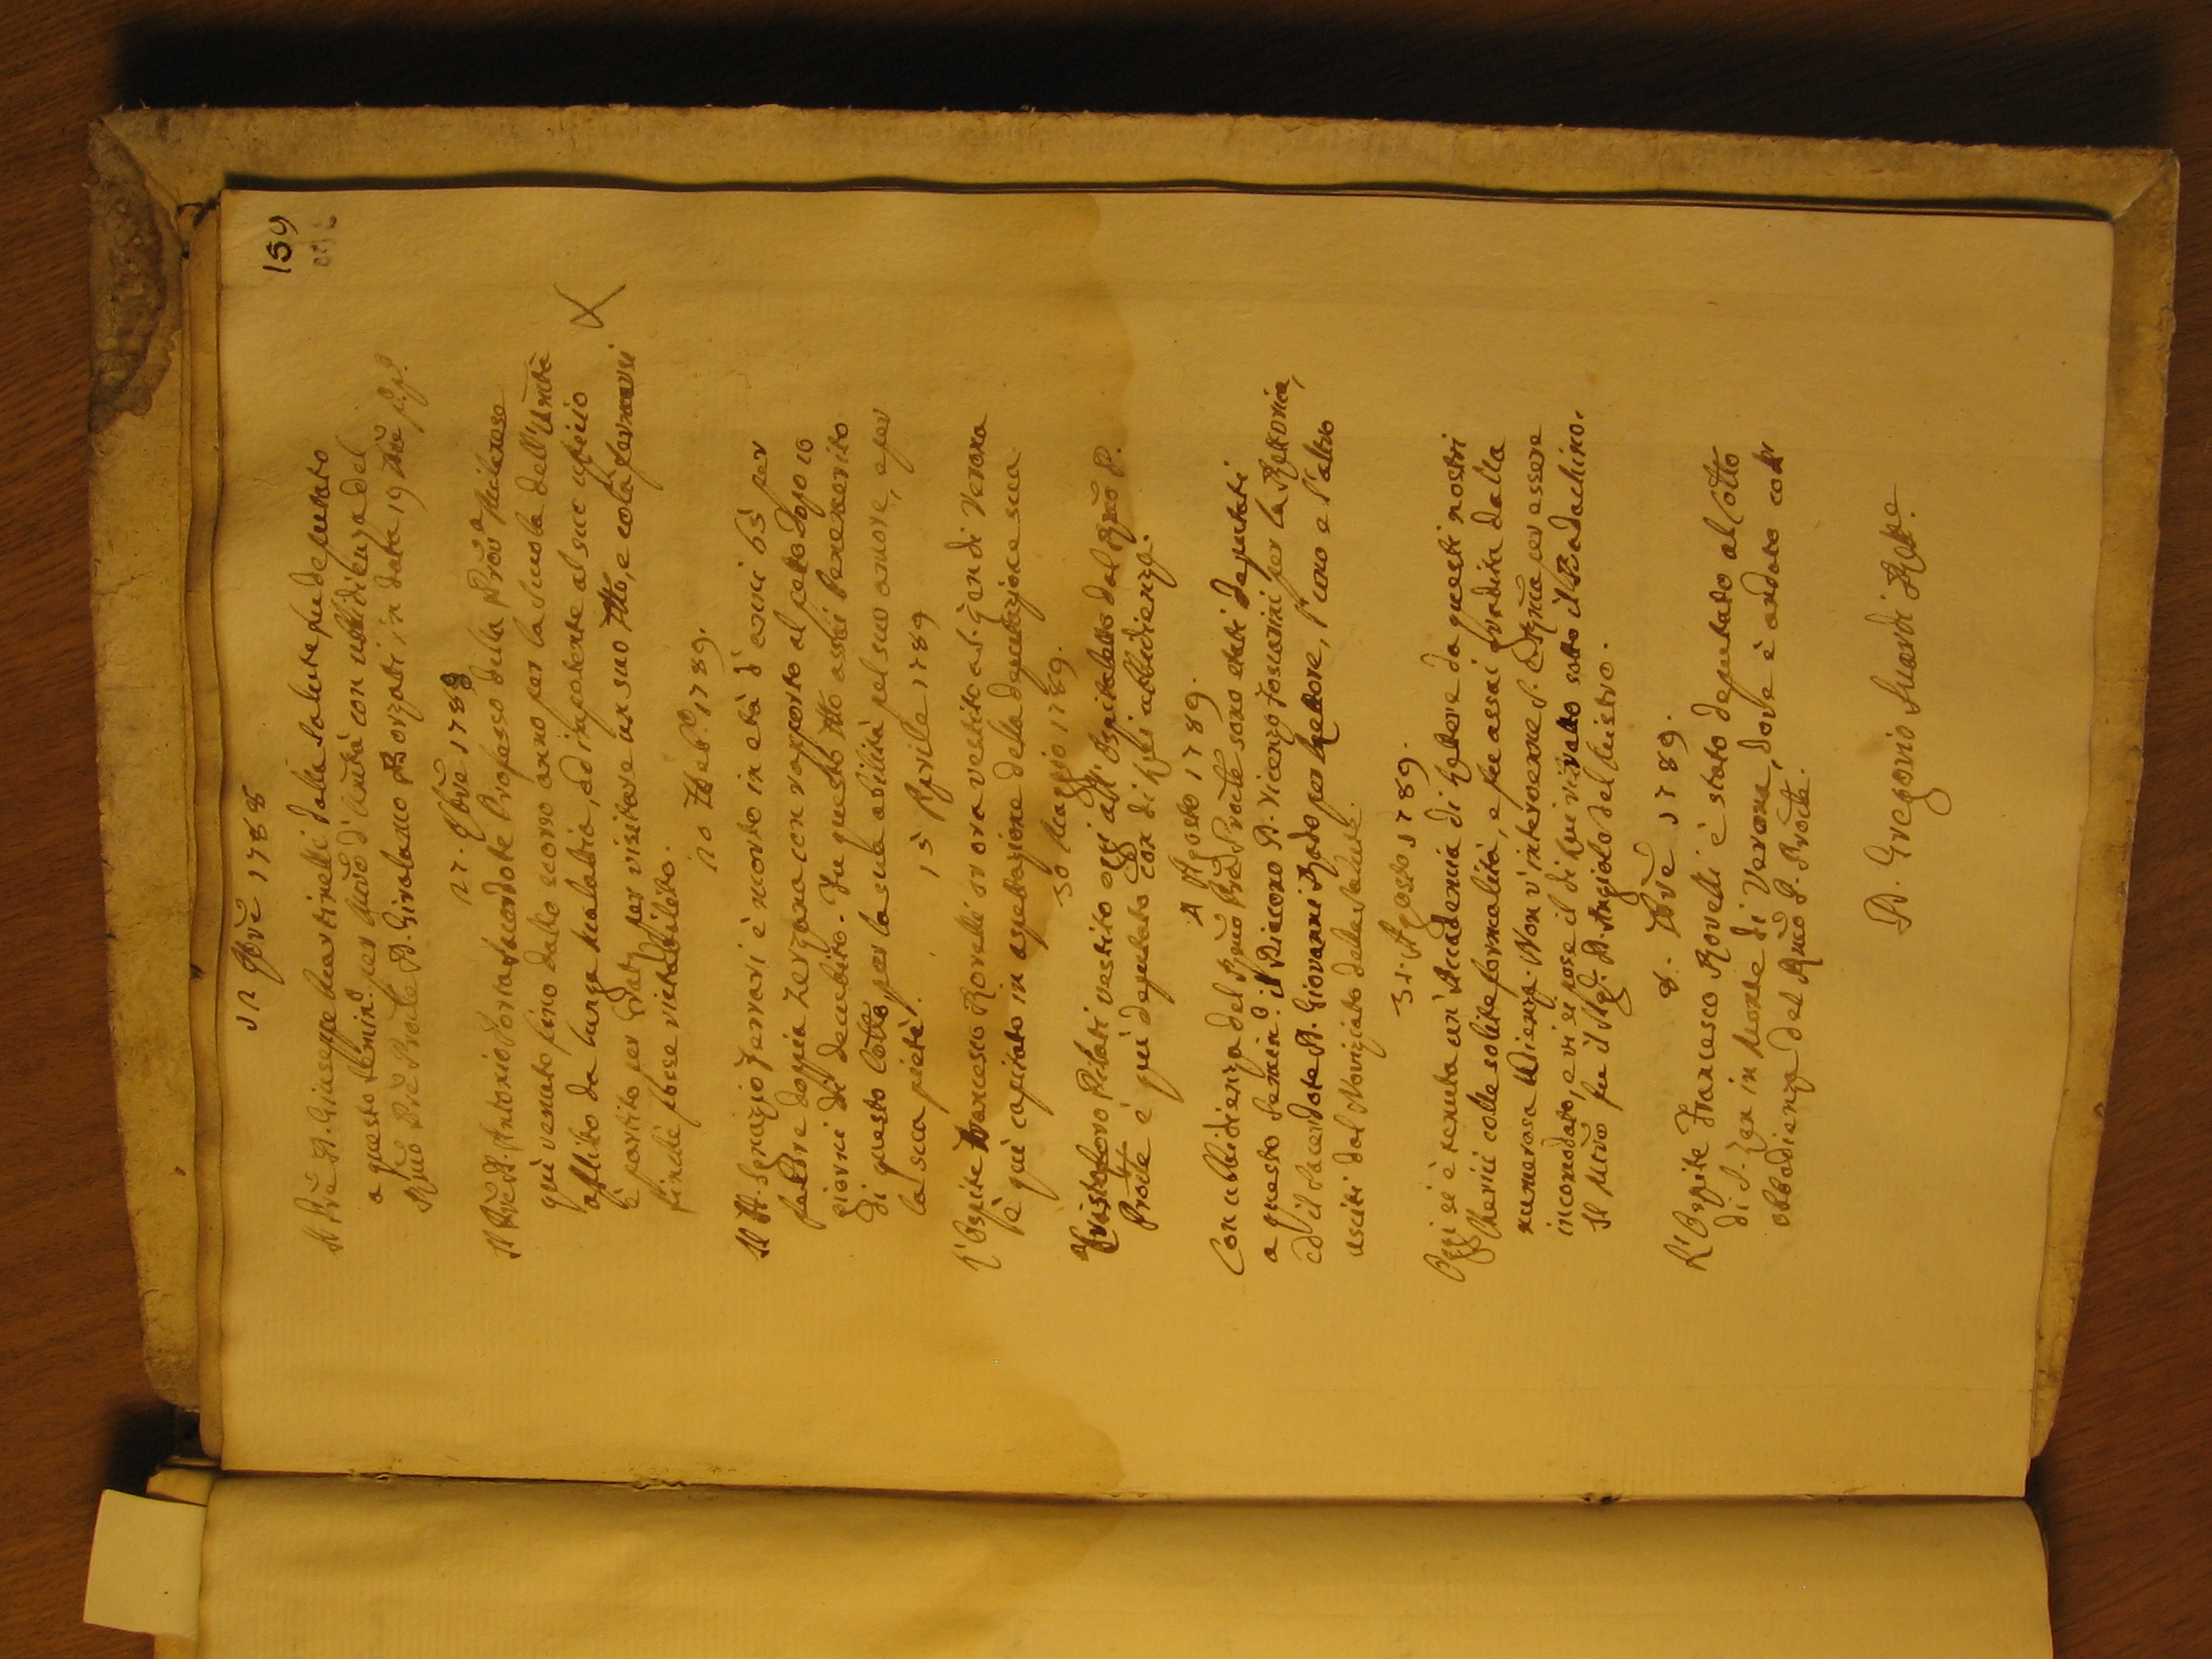 159
12 9bre 1788
Il Pre D. Giuseppe dalla Salute fu deputato
a questo Semin.o per d'Umtà con ubbidienza del
Rmo Pre Provle D. Girolamo Borzatti in data 19 p.p.
27. 9bre 1788
Il D. Antonio Sacerdote Professo della Provª Milanese
quì venuto fino dallo scorso anno per la Scuola dell'Umtà
afflitto da lunga malatia, ed impotente al suo ufficio
è partito per per visitare un suo e colà fermarsi
finchè fosse ristabilito.
20 Feb.o 1789.
Il Ignazio Ferrari è morto in età d'anni 65 per
febbre doppia Terzana con rapporto al petto dopo 10
giorni di decubito. Fu questo assai benemerito
di questo Cotto, per la sua abilità pel suo amore, e per
la sua pietà.
15 Aprile 1789
L'Ospite Francesco Rovelli or ora vestito a S. Zen di Verona
è quì capitato in aspettazione della deputazione sua
30 Maggio 1789.
Cristoforo Pilati vestito oggi all'Ospitaletto dal Rmo P.
Provle è quì deputato con di Lui ubbidienza.
4 Agosto 1789.
Con ubbidienza del Rmo Pre Provle sono stati deputati
a questo Semin.o il Diacono D. Vicenzo Toscanini per la Rettorica,
ed il Sacerdote D. Giovanni Rado per Rettore, l'uno e l'altro
usciti dal Novizziato della Salute.
31. Agosto 1789.
Oggi si è tenuta un'Accademia di Lettere da questi nostri
Cherici colle solite formalità, e fu assai gradita dalla
numerosa Udienza. Non v'intervenne S. per essere
incomodato, e vi si pose il di Lui ritratto sotto il Badachino.
Il Mtro fu il D. Angiolo del Mistro.
8. 1789.
L'Ospite Francesco Rovelli è stato deputato al Cotto
di S. Zen in Monte di Verona, dove è andato con
obbedienza del Rmo P. Provle.
D. Gregorio Suardi